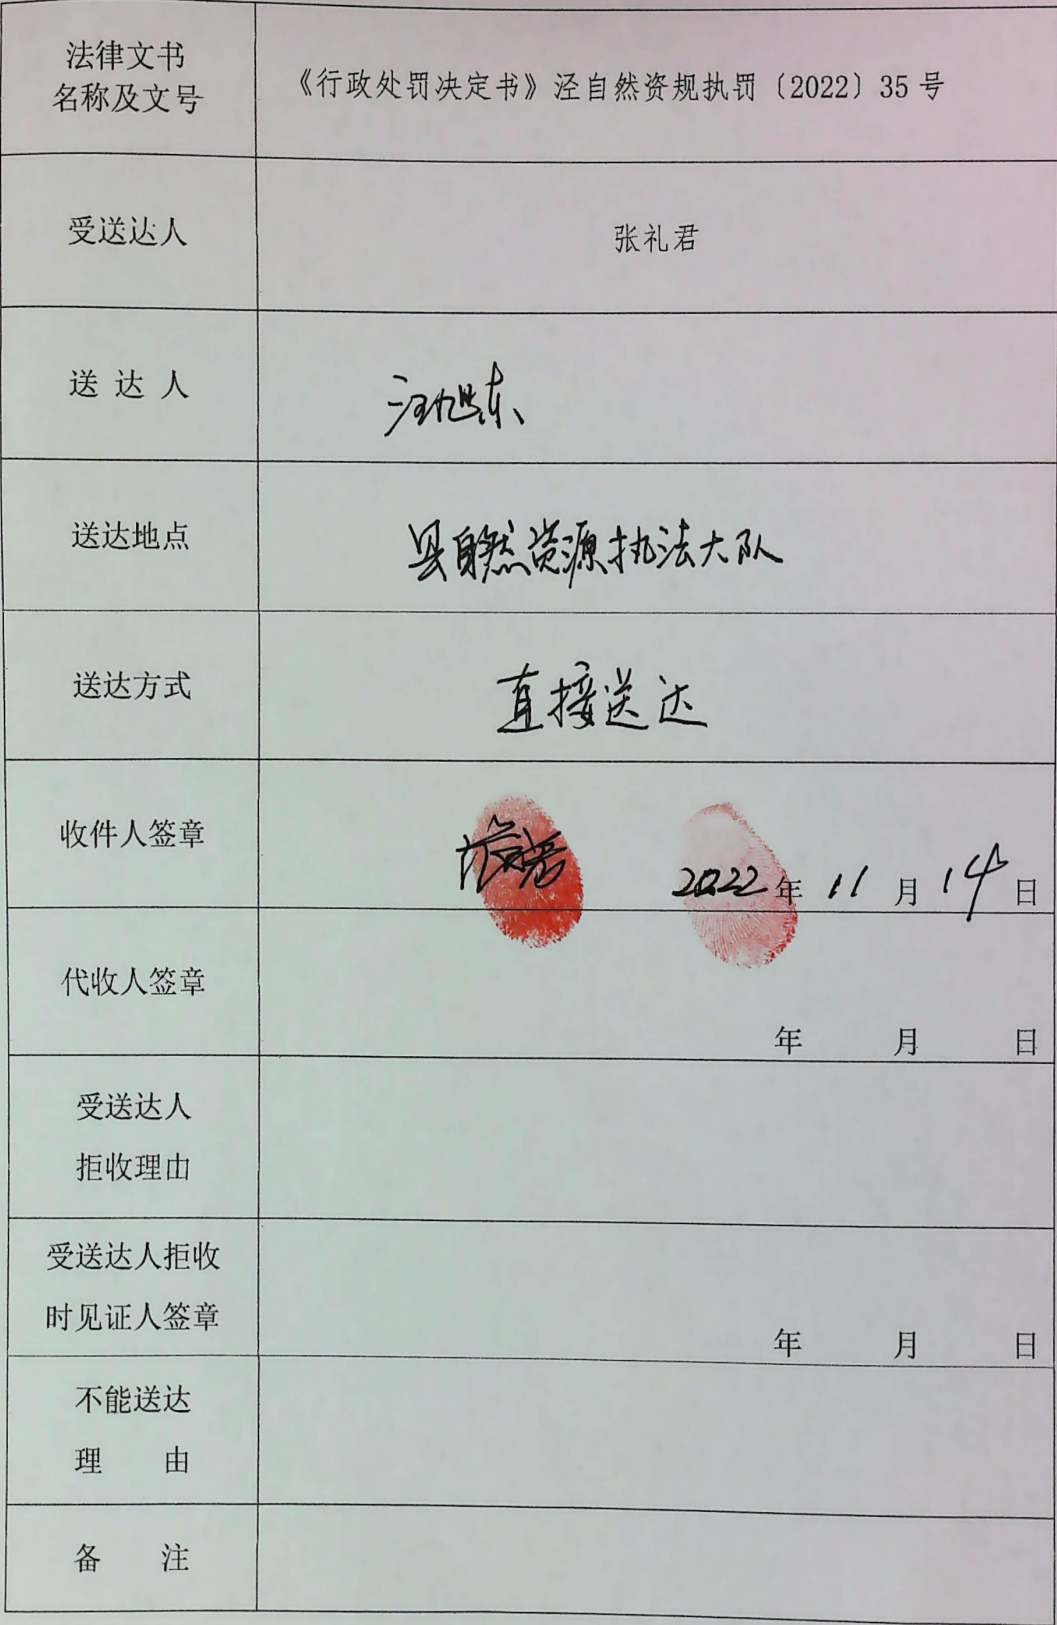 法律文书
名称及文号
《行政处罚决定书》泾自然资规执罚〔2022〕35号
受送达人
张礼君
送 达 人
汪旭东
送达地点
县自然资源执法大队
送达方式
直接送达
收件人签章
2022年11月14日
代收人签章
年 月 日
受送达人
拒收理由
受送达人拒收
时见证人签章
年 月 日
不能送达
理 由
备 注